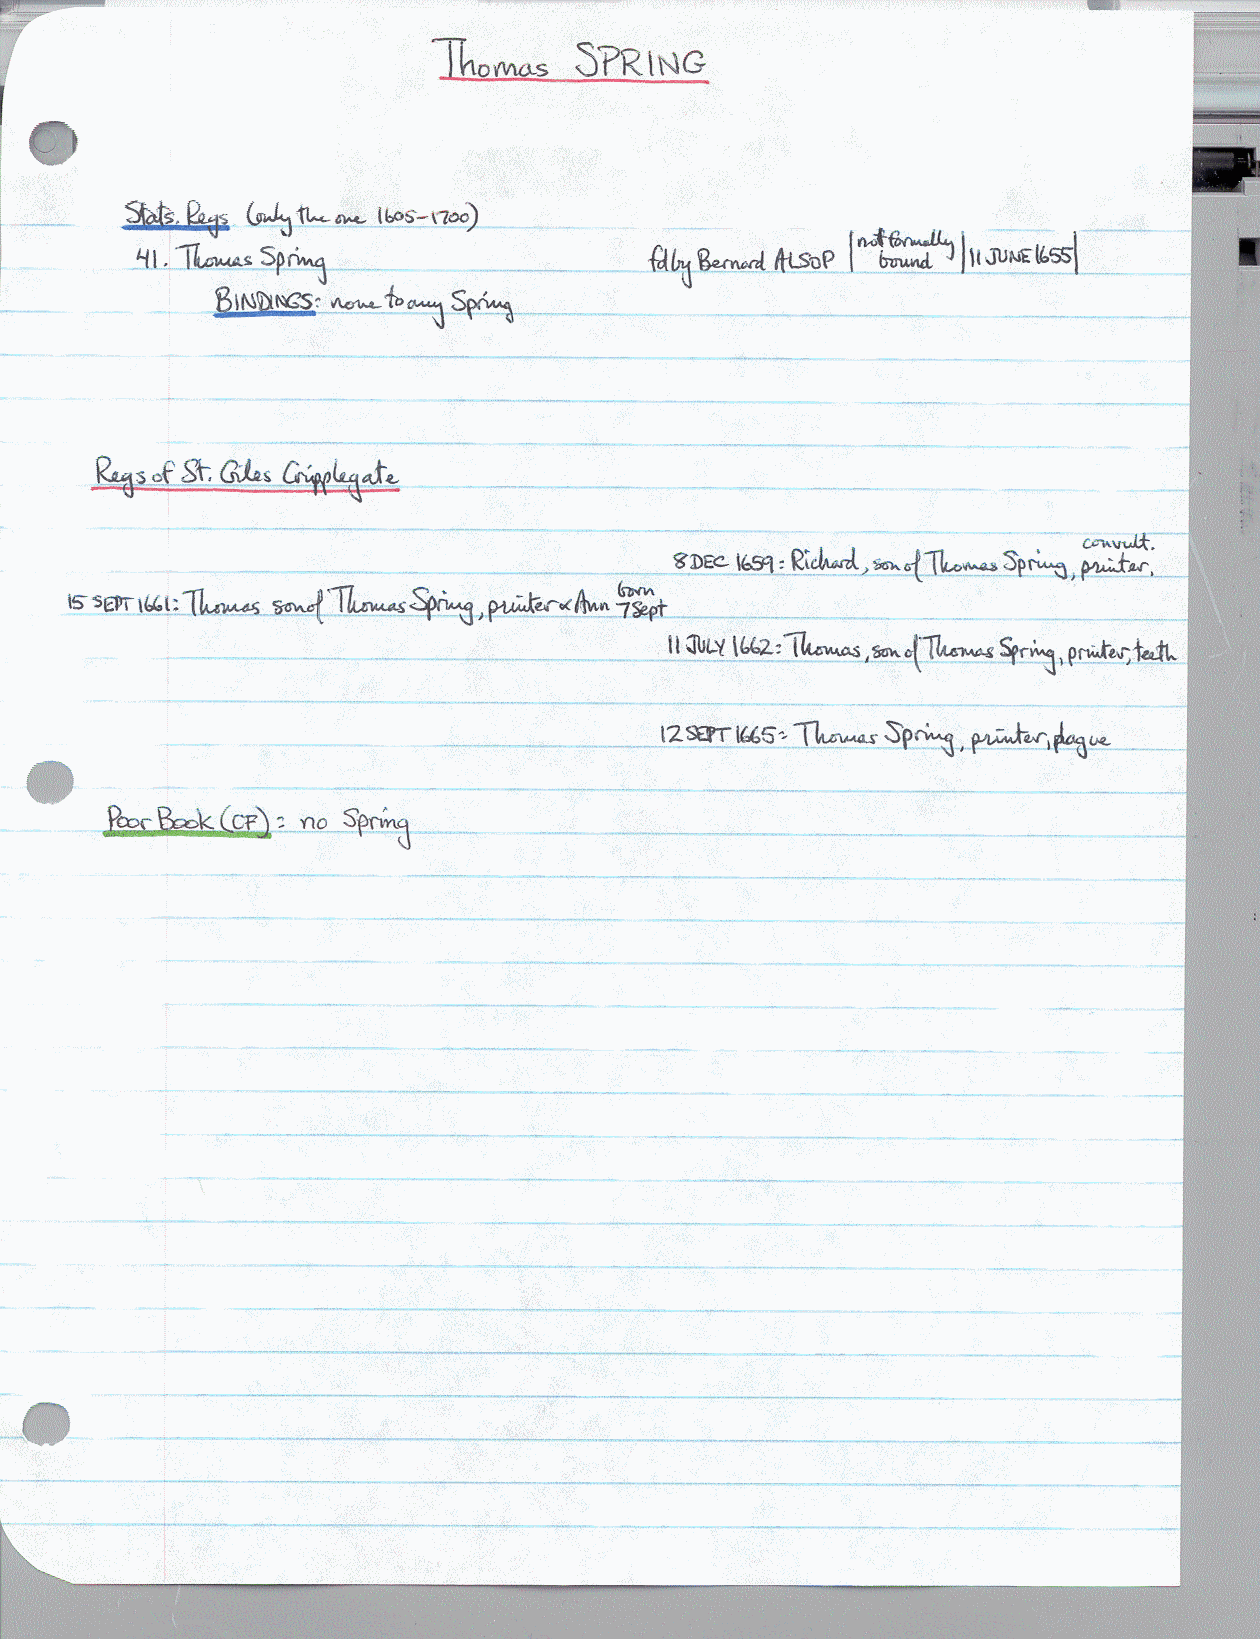 Thomas SPRING
Stats. Regs (only the one 1605-1700)
41. Thomas Spring fd by Bernard ALSOP | not formally bound | 11 JUNE 1655 |
BINDINGS: none to any Spring
Regs of St. Giles Cripplegate
8 DEC 1659: Richard, son of Thomas Spring, printer, convult.
15 SEPT 1661: Thomas son of Thomas Spring, printer & Ann born 7 Sept
11 JULY 1662: Thomas, son of Thomas Spring, printer, teeth
12 SEPT 1665: Thomas Spring, printer, plague
Poor Book (CF): no Spring